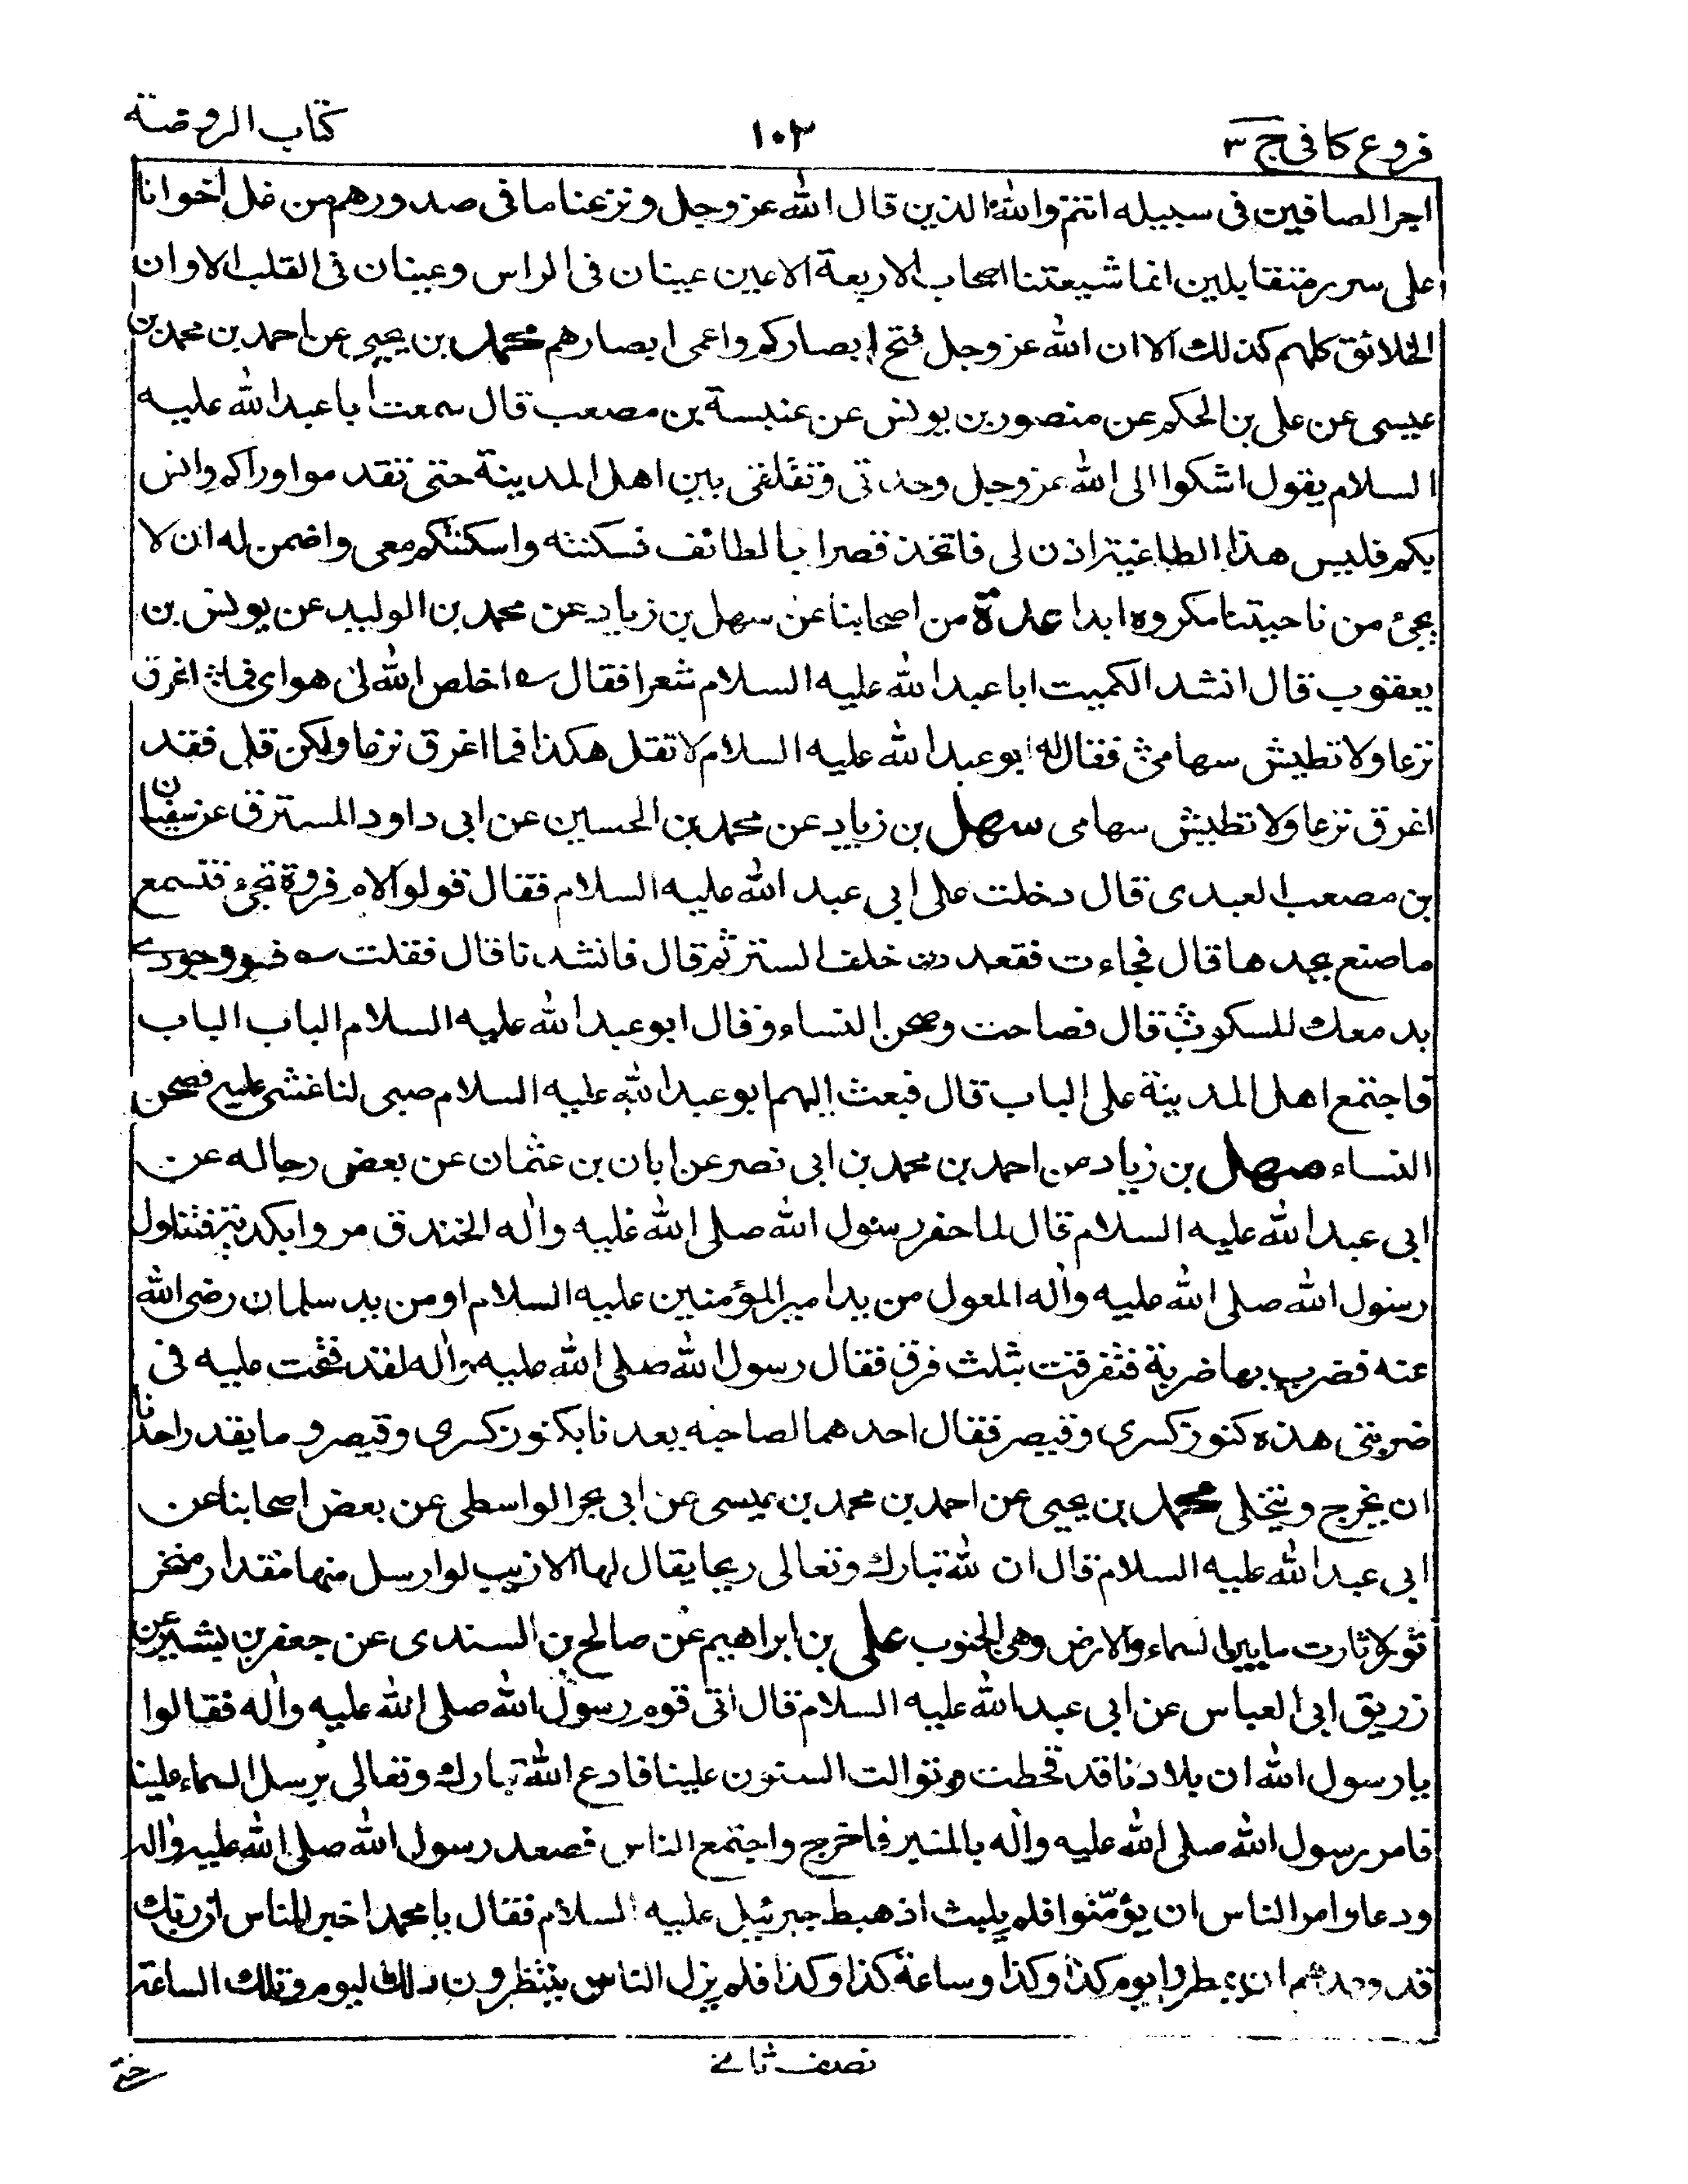 فروع كافى ج ٣
١٠٣
كتاب الروضة
اجر الصافين فى سبيله انتم والله الذين قال الله عز وجل ونزعنا ما فى صدورهم من غل اخوانا
على سرر متقابلين انما شيعتنا اصحاب الاربعة الاعين عينان فى الراس وعينان فى القلب الا وان
الخلائق كلهم كذلك الا ان الله عز وجل فتح ابصاركم واعمى ابصارهم محمد بن يحيى عن احمد بن محمد بن
عيسى عن على بن الحكم عن منصور بن يونس عن عنبسة بن مصعب قال سمعت ابا عبد الله عليه
السلام يقول اشكوا الى الله عز وجل وحدتى وتقلقى بين اهل المدينة حتى تقدموا واراكم وانس
بكم فليس هذا الطاغية اذن لى فاتخذ قصرا بالطائف فسكنته واسكنتكم معى واضمن له ان لا
يجئ من ناحيتنا مكروه ابدا عدة من اصحابنا عن سهل بن زياد عن محمد بن الوليد عن يونس بن
يعقوب قال انشد الكميت ابا عبد الله عليه السلام شعرا فقال اخلص الله لى هواى فما اغرق
نزعا ولا تطيش سهامى فقال له ابو عبد الله عليه السلام لا تقل هكذا فما اغرق نزعا ولكن قل فقد
اغرق نزعا ولا تطيش سهامى سهل بن زياد عن محمد بن الحسين عن ابى داود المسترق عن سفيان
بن مصعب العبدى قال دخلت على ابى عبد الله عليه السلام فقال قولوا لام فروة تجئ فتسمع
ما صنع بجدها قال فجاءت فقعدت خلف الستر ثم قال فانشدنا قال فقلت فرو جودى
بدمعك المسكوب قال فصاحت وصحن النساء وقال ابو عبد الله عليه السلام الباب الباب
فاجتمع اهل المدينة على الباب قال فبعث اليهم ابو عبد الله عليه السلام صبى لنا غشى عليه فصحن
النساء سهل بن زياد عن احمد بن محمد بن ابى نصر عن ابان بن عثمان عن بعض رجاله عن
ابى عبد الله عليه السلام قال لما حفر رسول الله صلى الله عليه واله الخندق مروا بكدية فتناول
رسول الله صلى الله عليه واله المعول من يد امير المؤمنين عليه السلام او من يد سلمان رضى الله
عنه فضرب بها ضربة فتفرقت بثلث فرق فقال رسول الله صلى الله عليه واله لقد فتحت عليه فى
ضربتى هذه كنوز كسرى وقيصر فقال احدهما لصاحبه يعدنا بكنوز كسرى وقيصر وما يقدر احدنا
ان يخرج ويتخلى محمد بن يحيى عن احمد بن محمد بن عيسى عن ابى يحيى الواسطى عن بعض اصحابنا عن
ابى عبد الله عليه السلام قال ان لله تبارك وتعالى ريحا يقال لها الازيب لو ارسل منها مقدار منخر
ثور لاثارت ما بين السماء والارض وهى الجنوب على بن ابراهيم عن صالح بن السندى عن جعفر بن بشير عن
زريق ابى العباس عن ابى عبد الله عليه السلام قال اتى قوم رسول الله صلى الله عليه واله فقالوا
يا رسول الله ان بلادنا قد قحطت وتوالت السنون علينا فادع الله تبارك وتعالى يرسل السماء علينا
فامر رسول الله صلى الله عليه واله بالمنبر فاخرج واجتمع الناس فصعد رسول الله صلى الله عليه واله
ودعا وامر الناس ان يؤمنوا فلم يلبث اذ هبط جبرئيل عليه السلام فقال يا محمد اخبر الناس ان ربك
قد وعدهم ان يمطروا يوم كذا وكذا وساعة كذا وكذا فلم يزل الناس ينتظرون ذلك اليوم وتلك الساعة
نصف ثانى
حتى